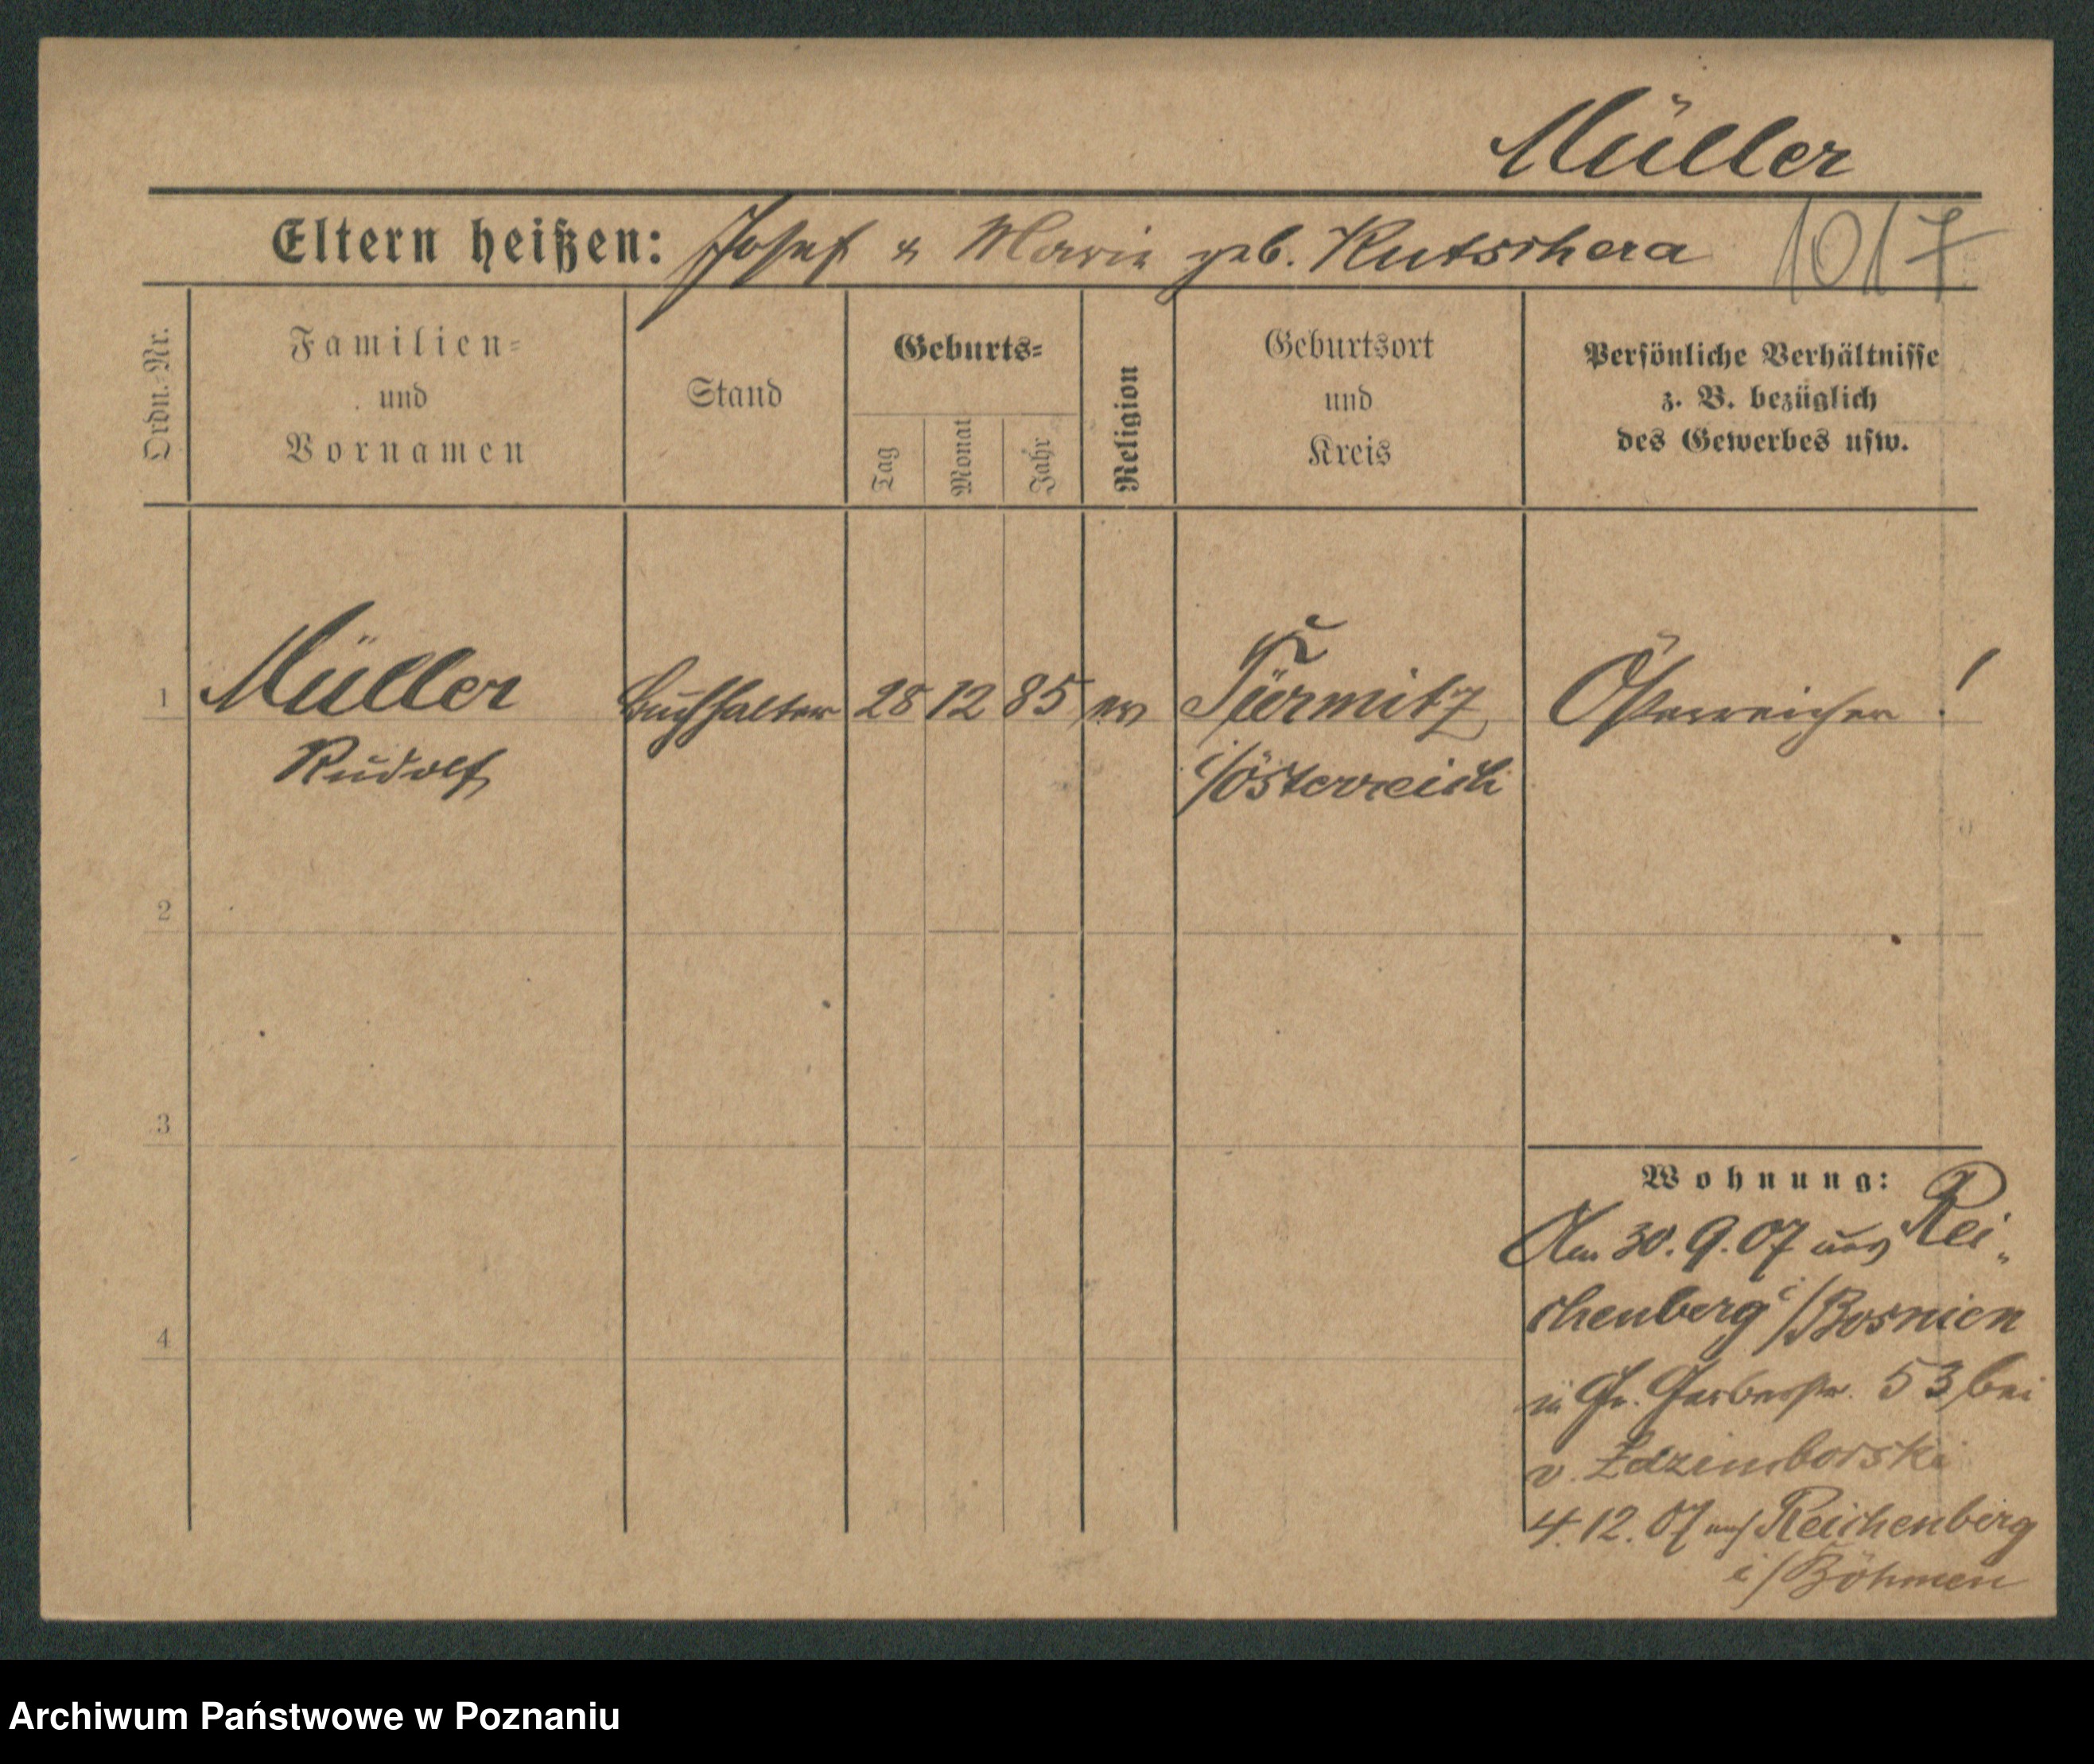 Müller
Eltern heißen: Josef & Marie geb. Kutschera 1017
Ordn.-Nr.
Familien=
und
Vornamen
Stand
Geburts=
Tag
Monat
Jahr
Religion
Geburtsort
und
Kreis
Persönliche Verhältnisse
z. B. bezüglich
des Gewerbes usw.
1 Müller Buchhalter 28 12 85 ev Türmitz Österreicher !
Rudolf i/Österreich
2
3
4
Wohnung:
Am 30. 9. 07 aus Rei„
chenberg i/Bosnien
in Gr. Gerberstr. 53 bei
v. Zdziemborski
4. 12. 07 nach Reichenberg
i/Böhmen
Archiwum Państwowe w Poznaniu